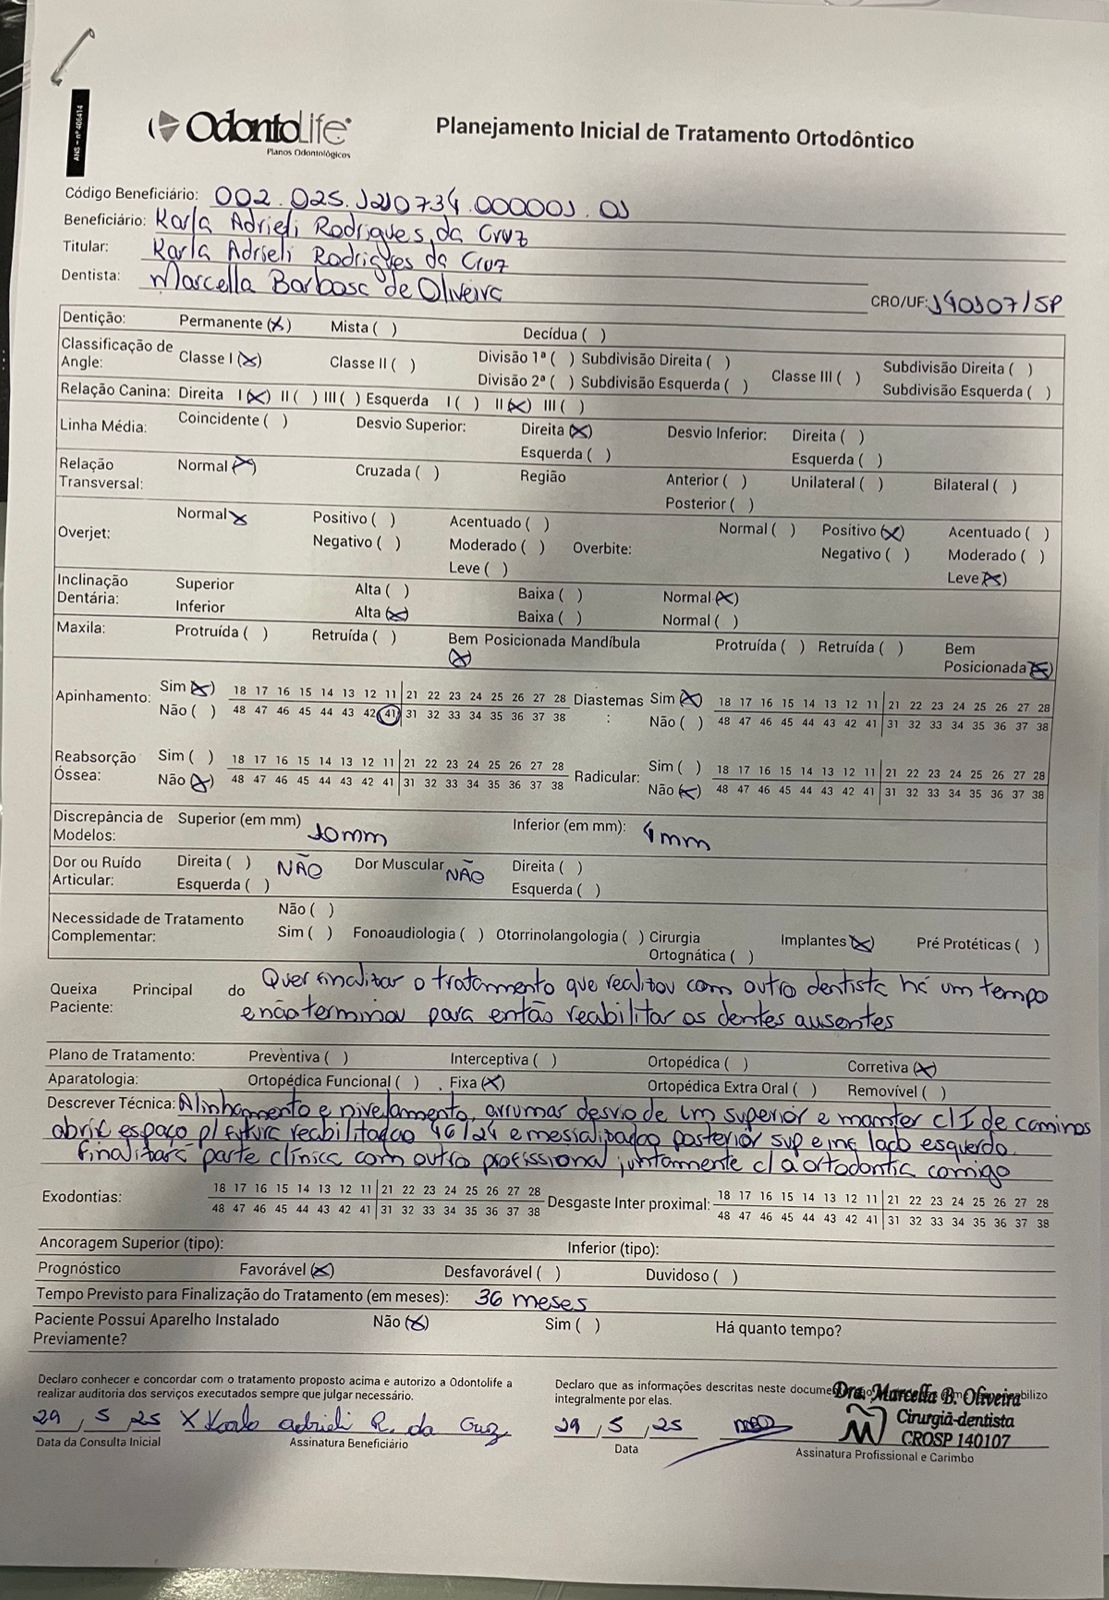 ANS - nº 406414
OdontoLife
Planos Odontológicos
Planejamento Inicial de Tratamento Ortodôntico
Código Beneficiário: 002.025.1210734.000001.01
Beneficiário: Karla Adrieli Rodrigues da Cruz
Titular: Karla Adrieli Rodrigues da Cruz
Dentista: Marcella Barbosa de Oliveira CRO/UF: 140107/SP
Dentição: Permanente (X) Mista ( ) Decídua ( )
Classificação de Angle: Classe I (X) Classe II ( ) Divisão 1ª ( ) Subdivisão Direita ( ) Classe III ( ) Subdivisão Direita ( )
Divisão 2ª ( ) Subdivisão Esquerda ( ) Subdivisão Esquerda ( )
Relação Canina: Direita I (X) II ( ) III ( ) Esquerda I ( ) II (X) III ( )
Linha Média: Coincidente ( ) Desvio Superior: Direita (X) Desvio Inferior: Direita ( )
Esquerda ( ) Esquerda ( )
Relação Transversal: Normal (X) Cruzada ( ) Região Anterior ( ) Unilateral ( ) Bilateral ( )
Posterior ( )
Overjet: Normal X Positivo ( ) Acentuado ( ) Overbite: Normal ( ) Positivo (X) Acentuado ( )
Negativo ( ) Moderado ( ) Negativo ( ) Moderado ( )
Leve ( ) Leve (X)
Inclinação Dentária: Superior Alta ( ) Baixa ( ) Normal (X)
Inferior Alta (X) Baixa ( ) Normal ( )
Maxila: Protruída ( ) Retruída ( ) Bem Posicionada (X) Mandíbula Protruída ( ) Retruída ( ) Bem Posicionada (X)
Apinhamento: Sim (X) 18 17 16 15 14 13 12 11 21 22 23 24 25 26 27 28 Diastemas: Sim (X) 18 17 16 15 14 13 12 11 21 22 23 24 25 26 27 28
Não ( ) 48 47 46 45 44 43 42 41 31 32 33 34 35 36 37 38 Não ( ) 48 47 46 45 44 43 42 41 31 32 33 34 35 36 37 38
Reabsorção Óssea: Sim ( ) 18 17 16 15 14 13 12 11 21 22 23 24 25 26 27 28 Radicular: Sim ( ) 18 17 16 15 14 13 12 11 21 22 23 24 25 26 27 28
Não (X) 48 47 46 45 44 43 42 41 31 32 33 34 35 36 37 38 Não (X) 48 47 46 45 44 43 42 41 31 32 33 34 35 36 37 38
Discrepância de Modelos: Superior (em mm) 10mm Inferior (em mm): 4mm
Dor ou Ruído Articular: Direita ( ) NÃO Dor Muscular NÃO Direita ( )
Esquerda ( ) Esquerda ( )
Necessidade de Tratamento Complementar: Não ( )
Sim ( ) Fonoaudiologia ( ) Otorrinolangologia ( ) Cirurgia Ortognática ( ) Implantes (X) Pré Protéticas ( )
Queixa Principal do Paciente: Quer finalizar o tratamento que realizou com outro dentista há um tempo
e não terminou para então reabilitar os dentes ausentes
Plano de Tratamento: Preventiva ( ) Interceptiva ( ) Ortopédica ( ) Corretiva (X)
Aparatologia: Ortopédica Funcional ( ) Fixa (X) Ortopédica Extra Oral ( ) Removível ( )
Descrever Técnica: Alinhamento e nivelamento, arrumar desvio de lm superior e manter cl I de caninos
abrir espaço p/ futura reabilitação 46/24 e posterior sup e inf lado esquerdo.
Finalizará parte clínica com outro profissional juntamente c/ a ortodontia comigo
Exodontias: 18 17 16 15 14 13 12 11 21 22 23 24 25 26 27 28 Desgaste Inter proximal: 18 17 16 15 14 13 12 11 21 22 23 24 25 26 27 28
48 47 46 45 44 43 42 41 31 32 33 34 35 36 37 38 48 47 46 45 44 43 42 41 31 32 33 34 35 36 37 38
Ancoragem Superior (tipo): Inferior (tipo):
Prognóstico Favorável (X) Desfavorável ( ) Duvidoso ( )
Tempo Previsto para Finalização do Tratamento (em meses): 36 meses
Paciente Possui Aparelho Instalado Previamente? Não (X) Sim ( ) Há quanto tempo?
Declaro conhecer e concordar com o tratamento proposto acima e autorizo a Odontolife a
realizar auditoria dos serviços executados sempre que julgar necessário.
29, 5, 25 X Karla adrieli R. da Cruz
Data da Consulta Inicial Assinatura Beneficiário
Declaro que as informações descritas neste
integralmente por elas.
29, 5, 25
Data
Dra. Marcella B. Oliveira
Cirurgiã-dentista
CROSP 140107
Assinatura Profissional e Carimbo